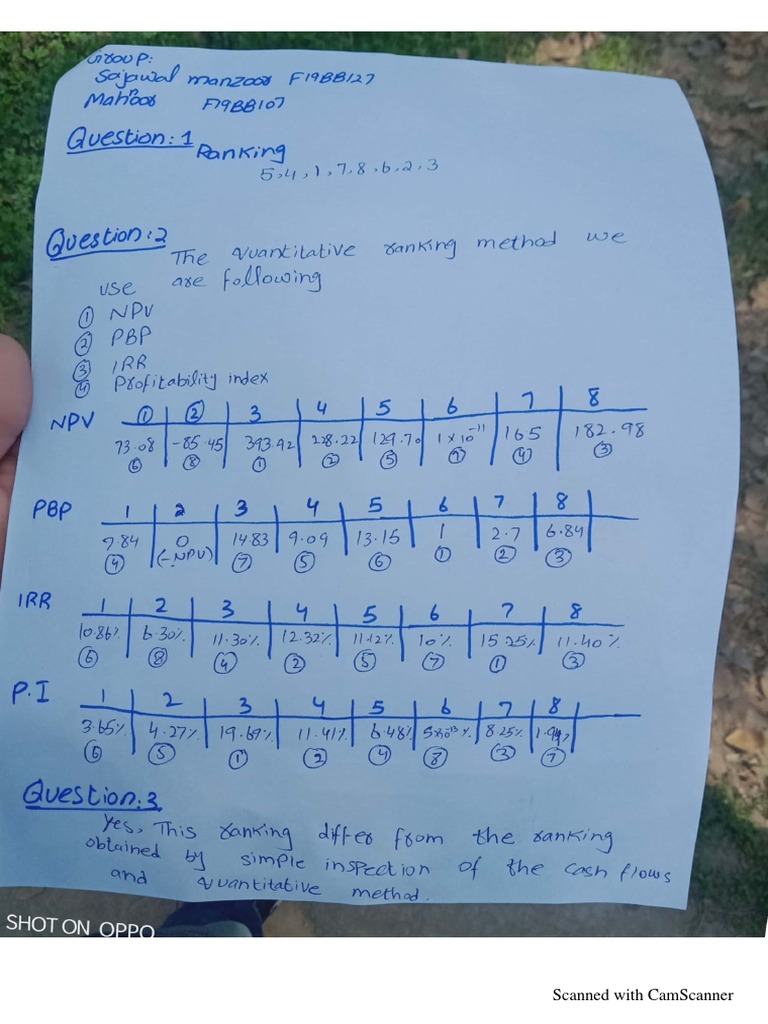 Group:
Sajawal manzoor F19BB127
Mahnoor F19BB107
Question: 1
Ranking
5,4,1,7,8,6,2,3
Question: 2
The quantitative ranking method we
use are following
① NPV
② PBP
③ IRR
④ Profitability index
NPV ① ② 3 4 5 6 7 8
73.08 -85.45 393.92 228.22 129.70 1×10⁻¹¹ 165 182.98
⑥ ⑧ ① ② ⑤ ⑦ ④ ③
PBP 1 2 3 4 5 6 7 8
7.84 0 14.83 9.09 13.15 1 2.7 6.84
④ (-NPV) ⑦ ⑤ ⑥ ① ② ③
IRR 1 2 3 4 5 6 7 8
10.86% 6.30% 11.30% 12.32% 11.12% 10% 15.25% 11.40%
⑥ ⑧ ④ ② ⑤ ⑦ ① ③
P.I 1 2 3 4 5 6 7 8
3.65% 4.27% 19.69% 11.41% 6.48% 5×10⁻¹³% 8.25%
⑥ ⑤ ① ② ④ ⑧ ③ ⑦
Question: 3
Yes, This ranking differ from the ranking
obtained by simple inspection of the cash flows
and quantitative method.
SHOT ON OPPO
Scanned with CamScanner